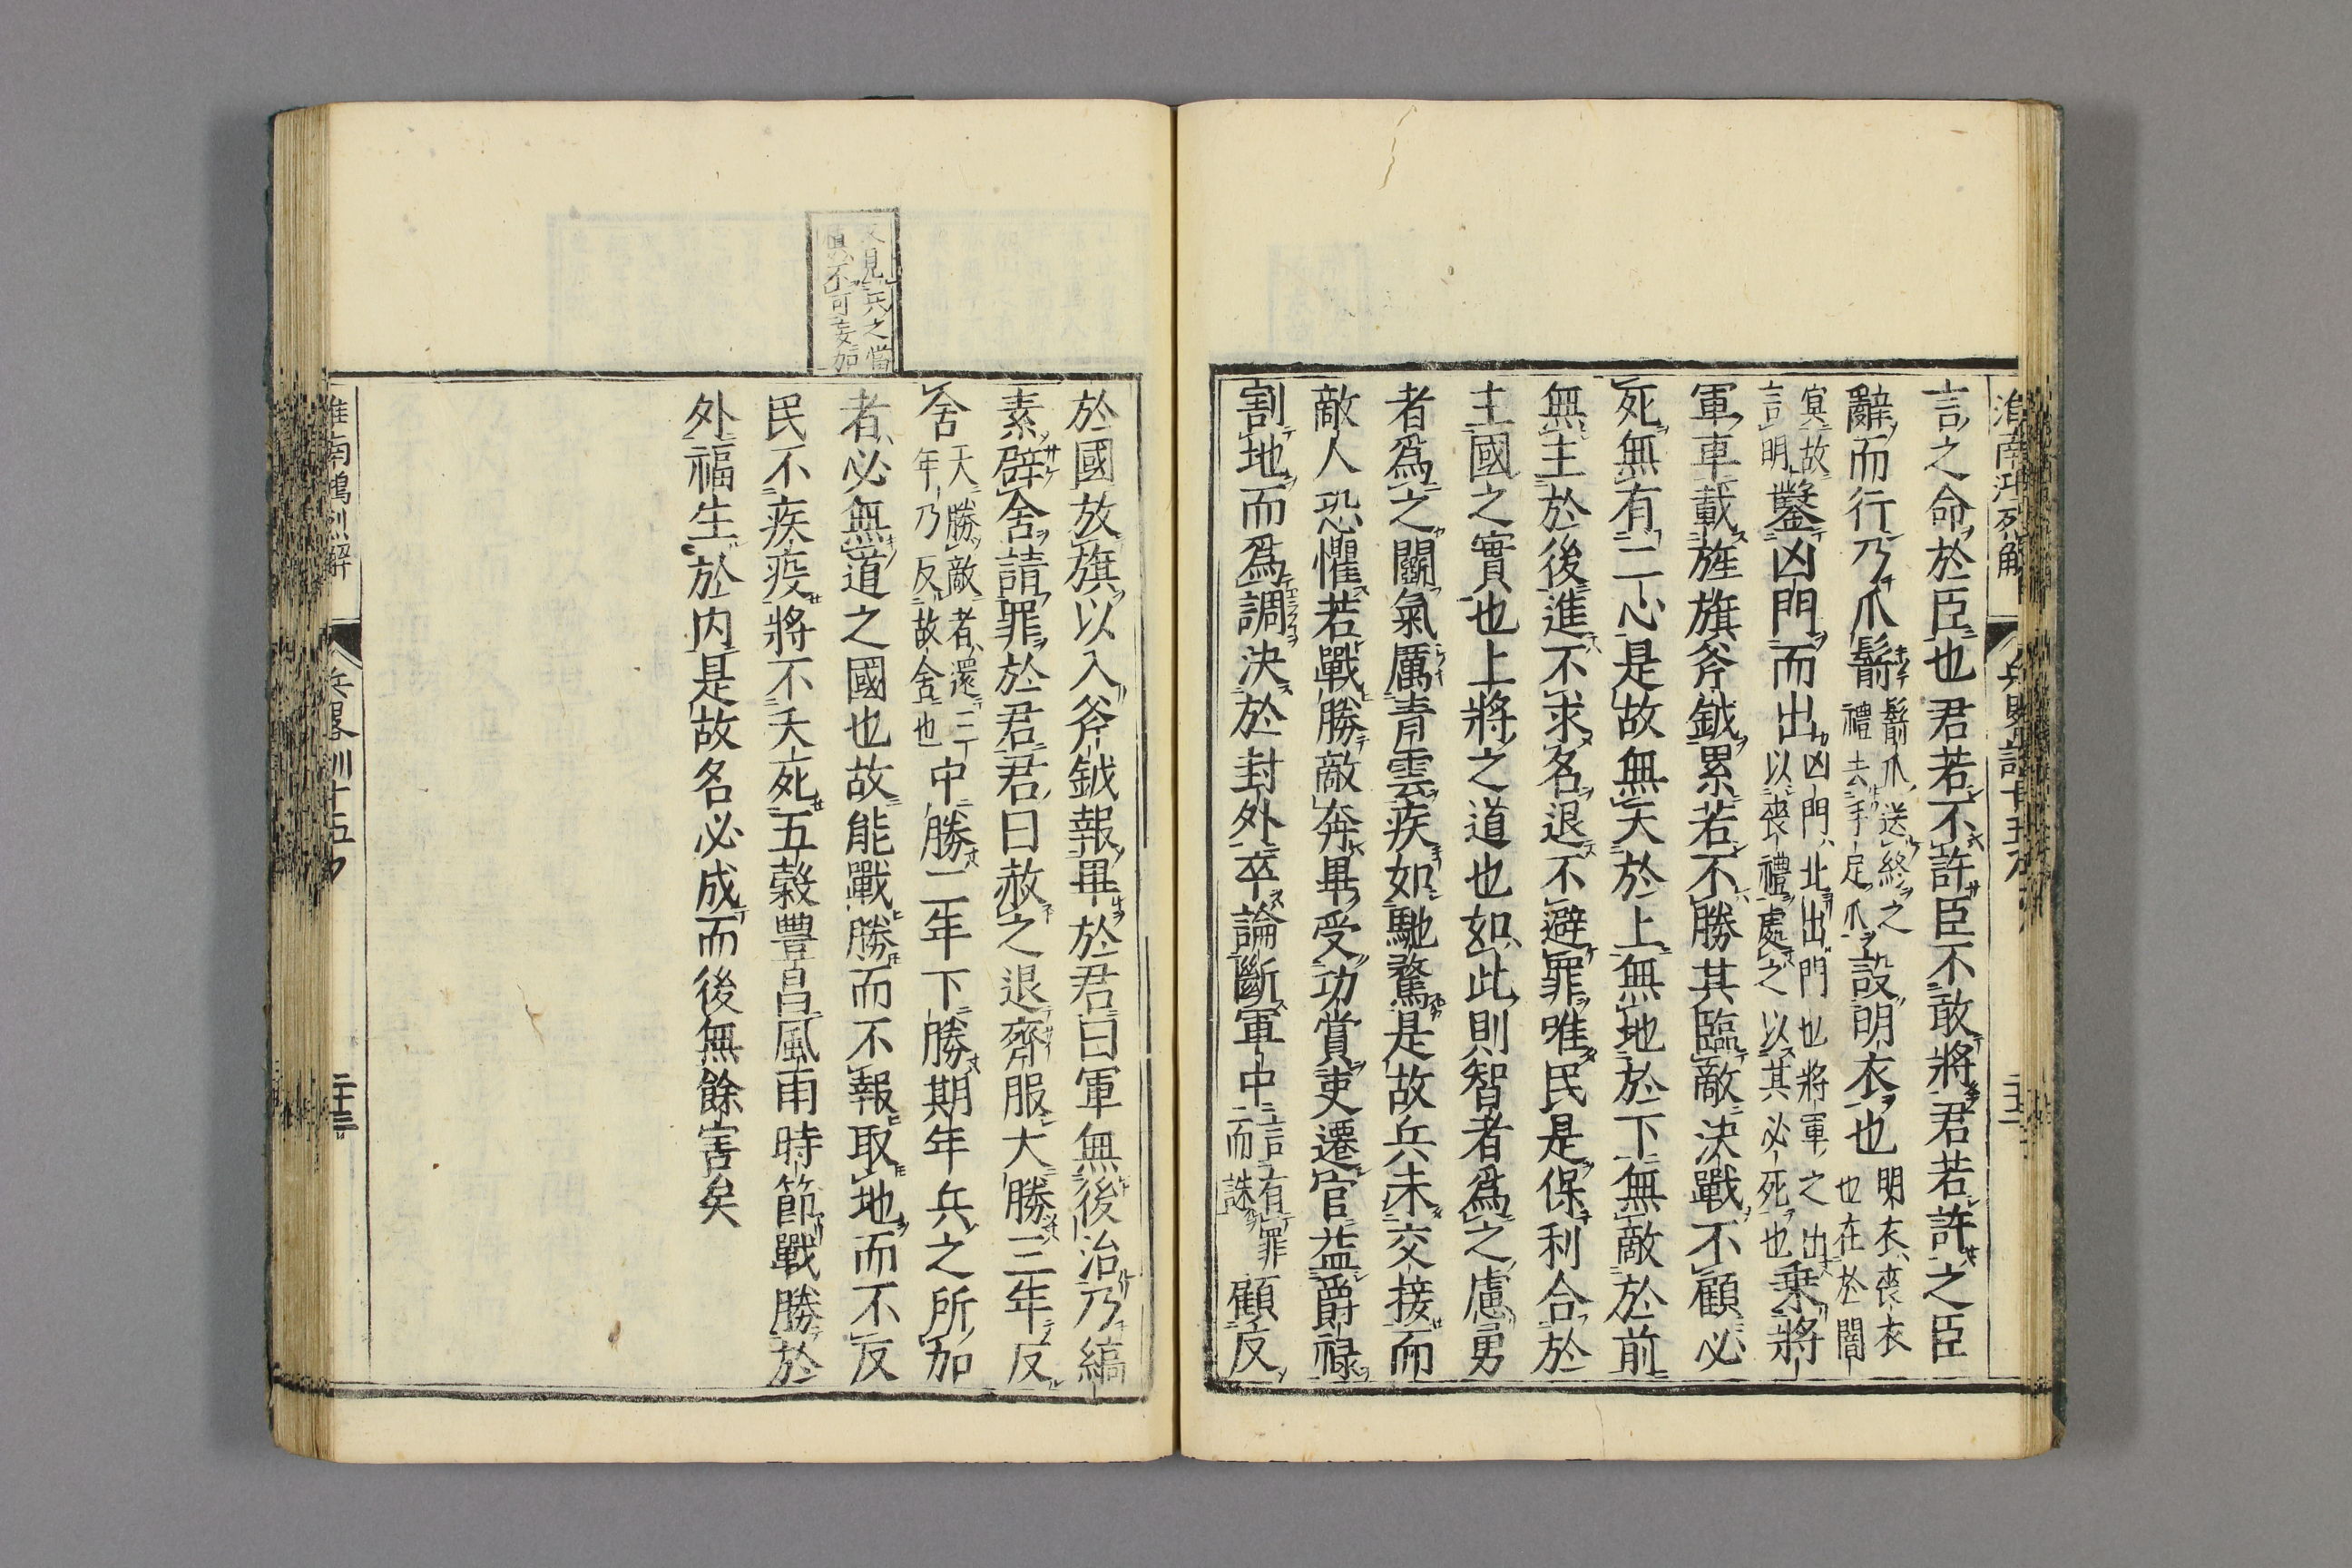 言之命於臣也君若不許臣不敢將君若許之臣
辭而行乃爪鬋鬋爪送終之禮去手足爪設明衣也明衣喪衣也在於闇
冥故言明鑿凶門而出凶門北出門也將軍之出以喪禮處之以其必死也乗將
軍車載旌旗斧鉞累若不勝其臨敵決戰不顧必
死無有二心是故無天於上無地於下無敵於前
無主於後進不求名退不避罪唯民是保利合於
主國之實也上將之道也如此則智者爲之慮勇
者爲之鬭氣厲青雲疾如馳騖是故兵未交接而
敵人恐懼若戰勝敵奔畢受功賞吏遷官益爵祿
割地而爲調決於封外卒論斷軍中言有罪而誅顧反
於國放旗以入斧鉞報畢於君曰軍無後治乃縞
素辟舍請罪於君君曰赦之退齊服大勝三年反
舍大勝敵者還三年乃反故舍也中勝二年下勝期年兵之所加
者必無道之國也故能戰勝而不報取地而不反
民不疾疫將不夭死五穀豊昌風雨時節戰勝於
外福生於内是故名必成而後無餘害矣
見兵之當
慎不可妄加
淮南鴻烈解
兵畧訓十五
二十三